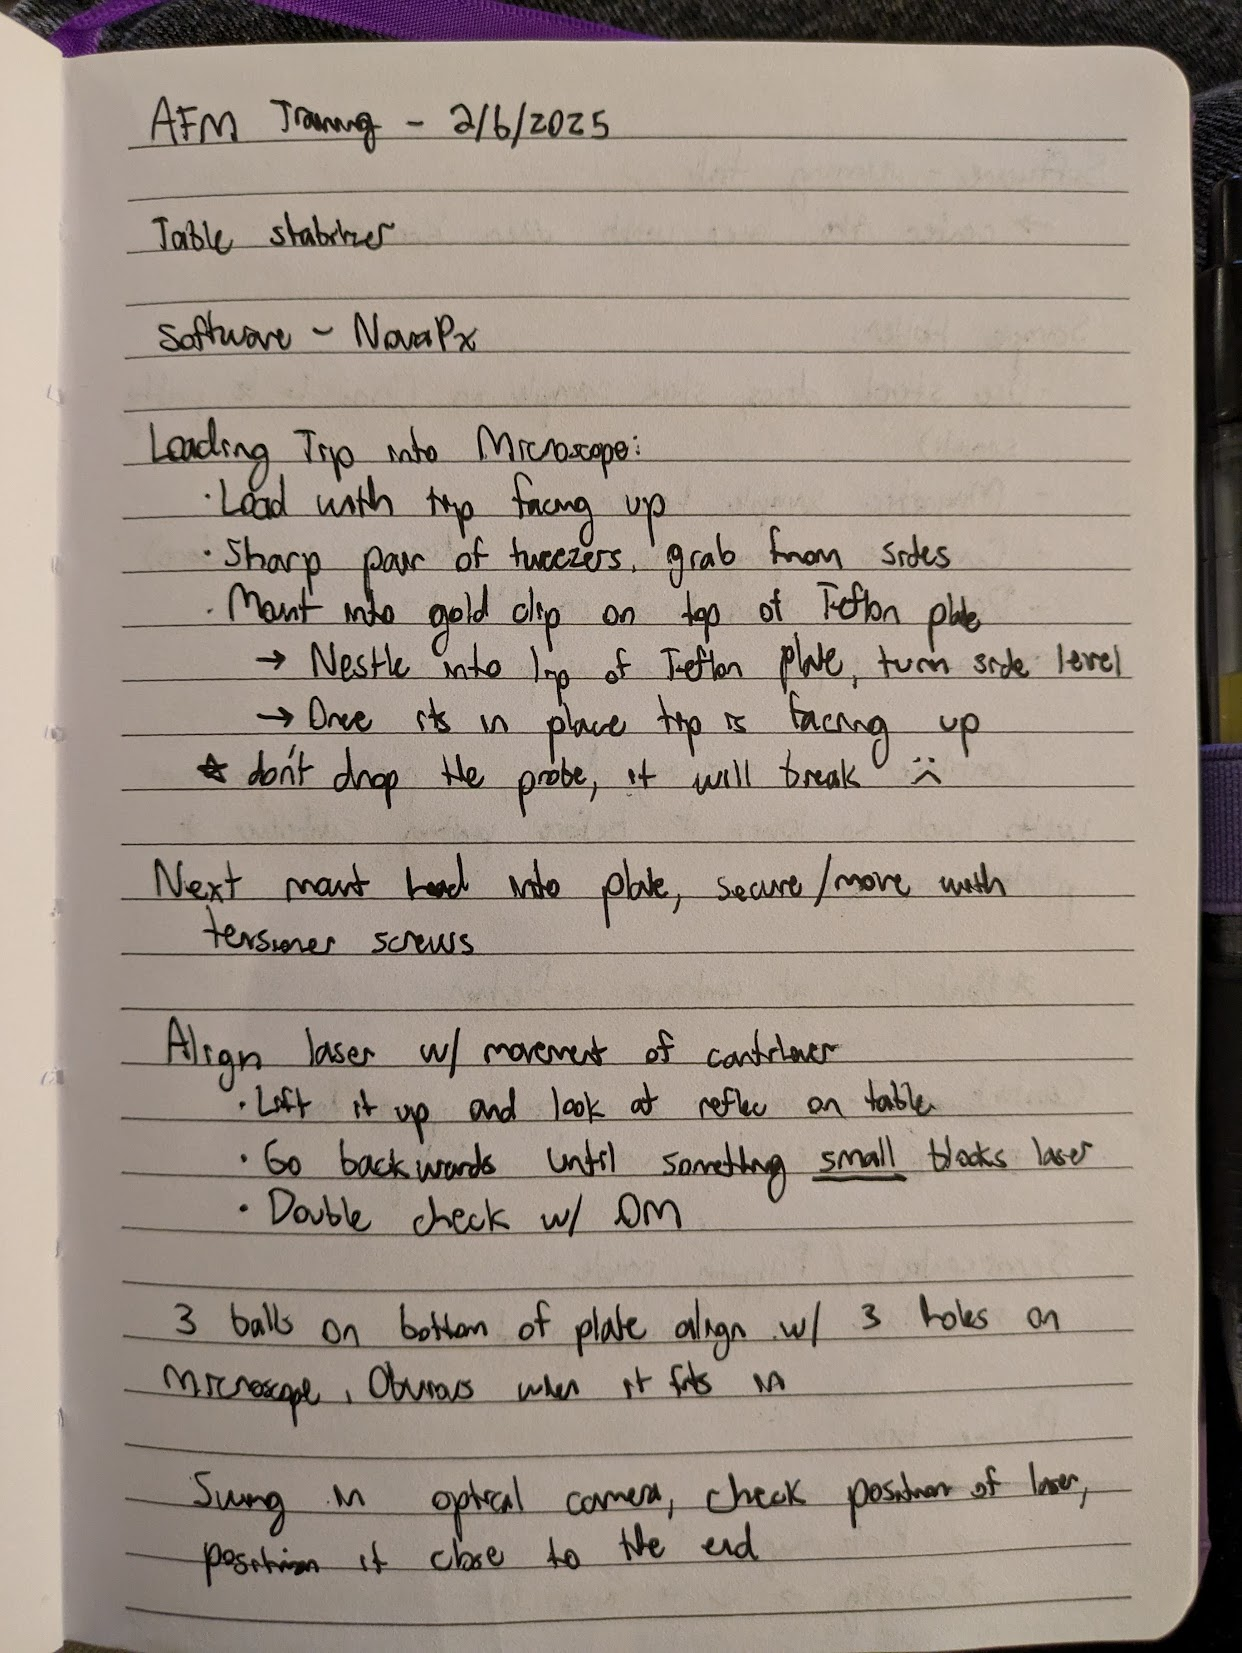 AFM Training - 2/6/2025
Table stabilizer
Software - NovaPx
Loading Tip into Microscope:
· Load with tip facing up
· Sharp pair of tweezers, grab from sides
· Mount into gold clip on top of Teflon plate
→ Nestle into lip of Teflon plate, turn side level
→ Once its in place tip is facing up
☆ don't drop the probe, it will break :(
Next mount head into plate, secure/move with
tensioner screws
Align laser w/ movement of cantilever
· Lift it up and look at reflec on table
· Go backwards until something small blocks laser
· Double check w/ OM
3 balls on bottom of plate align w/ 3 holes on
microscope, Obvious when it fits in
Swing in optical camera, check position of laser,
position it close to the end